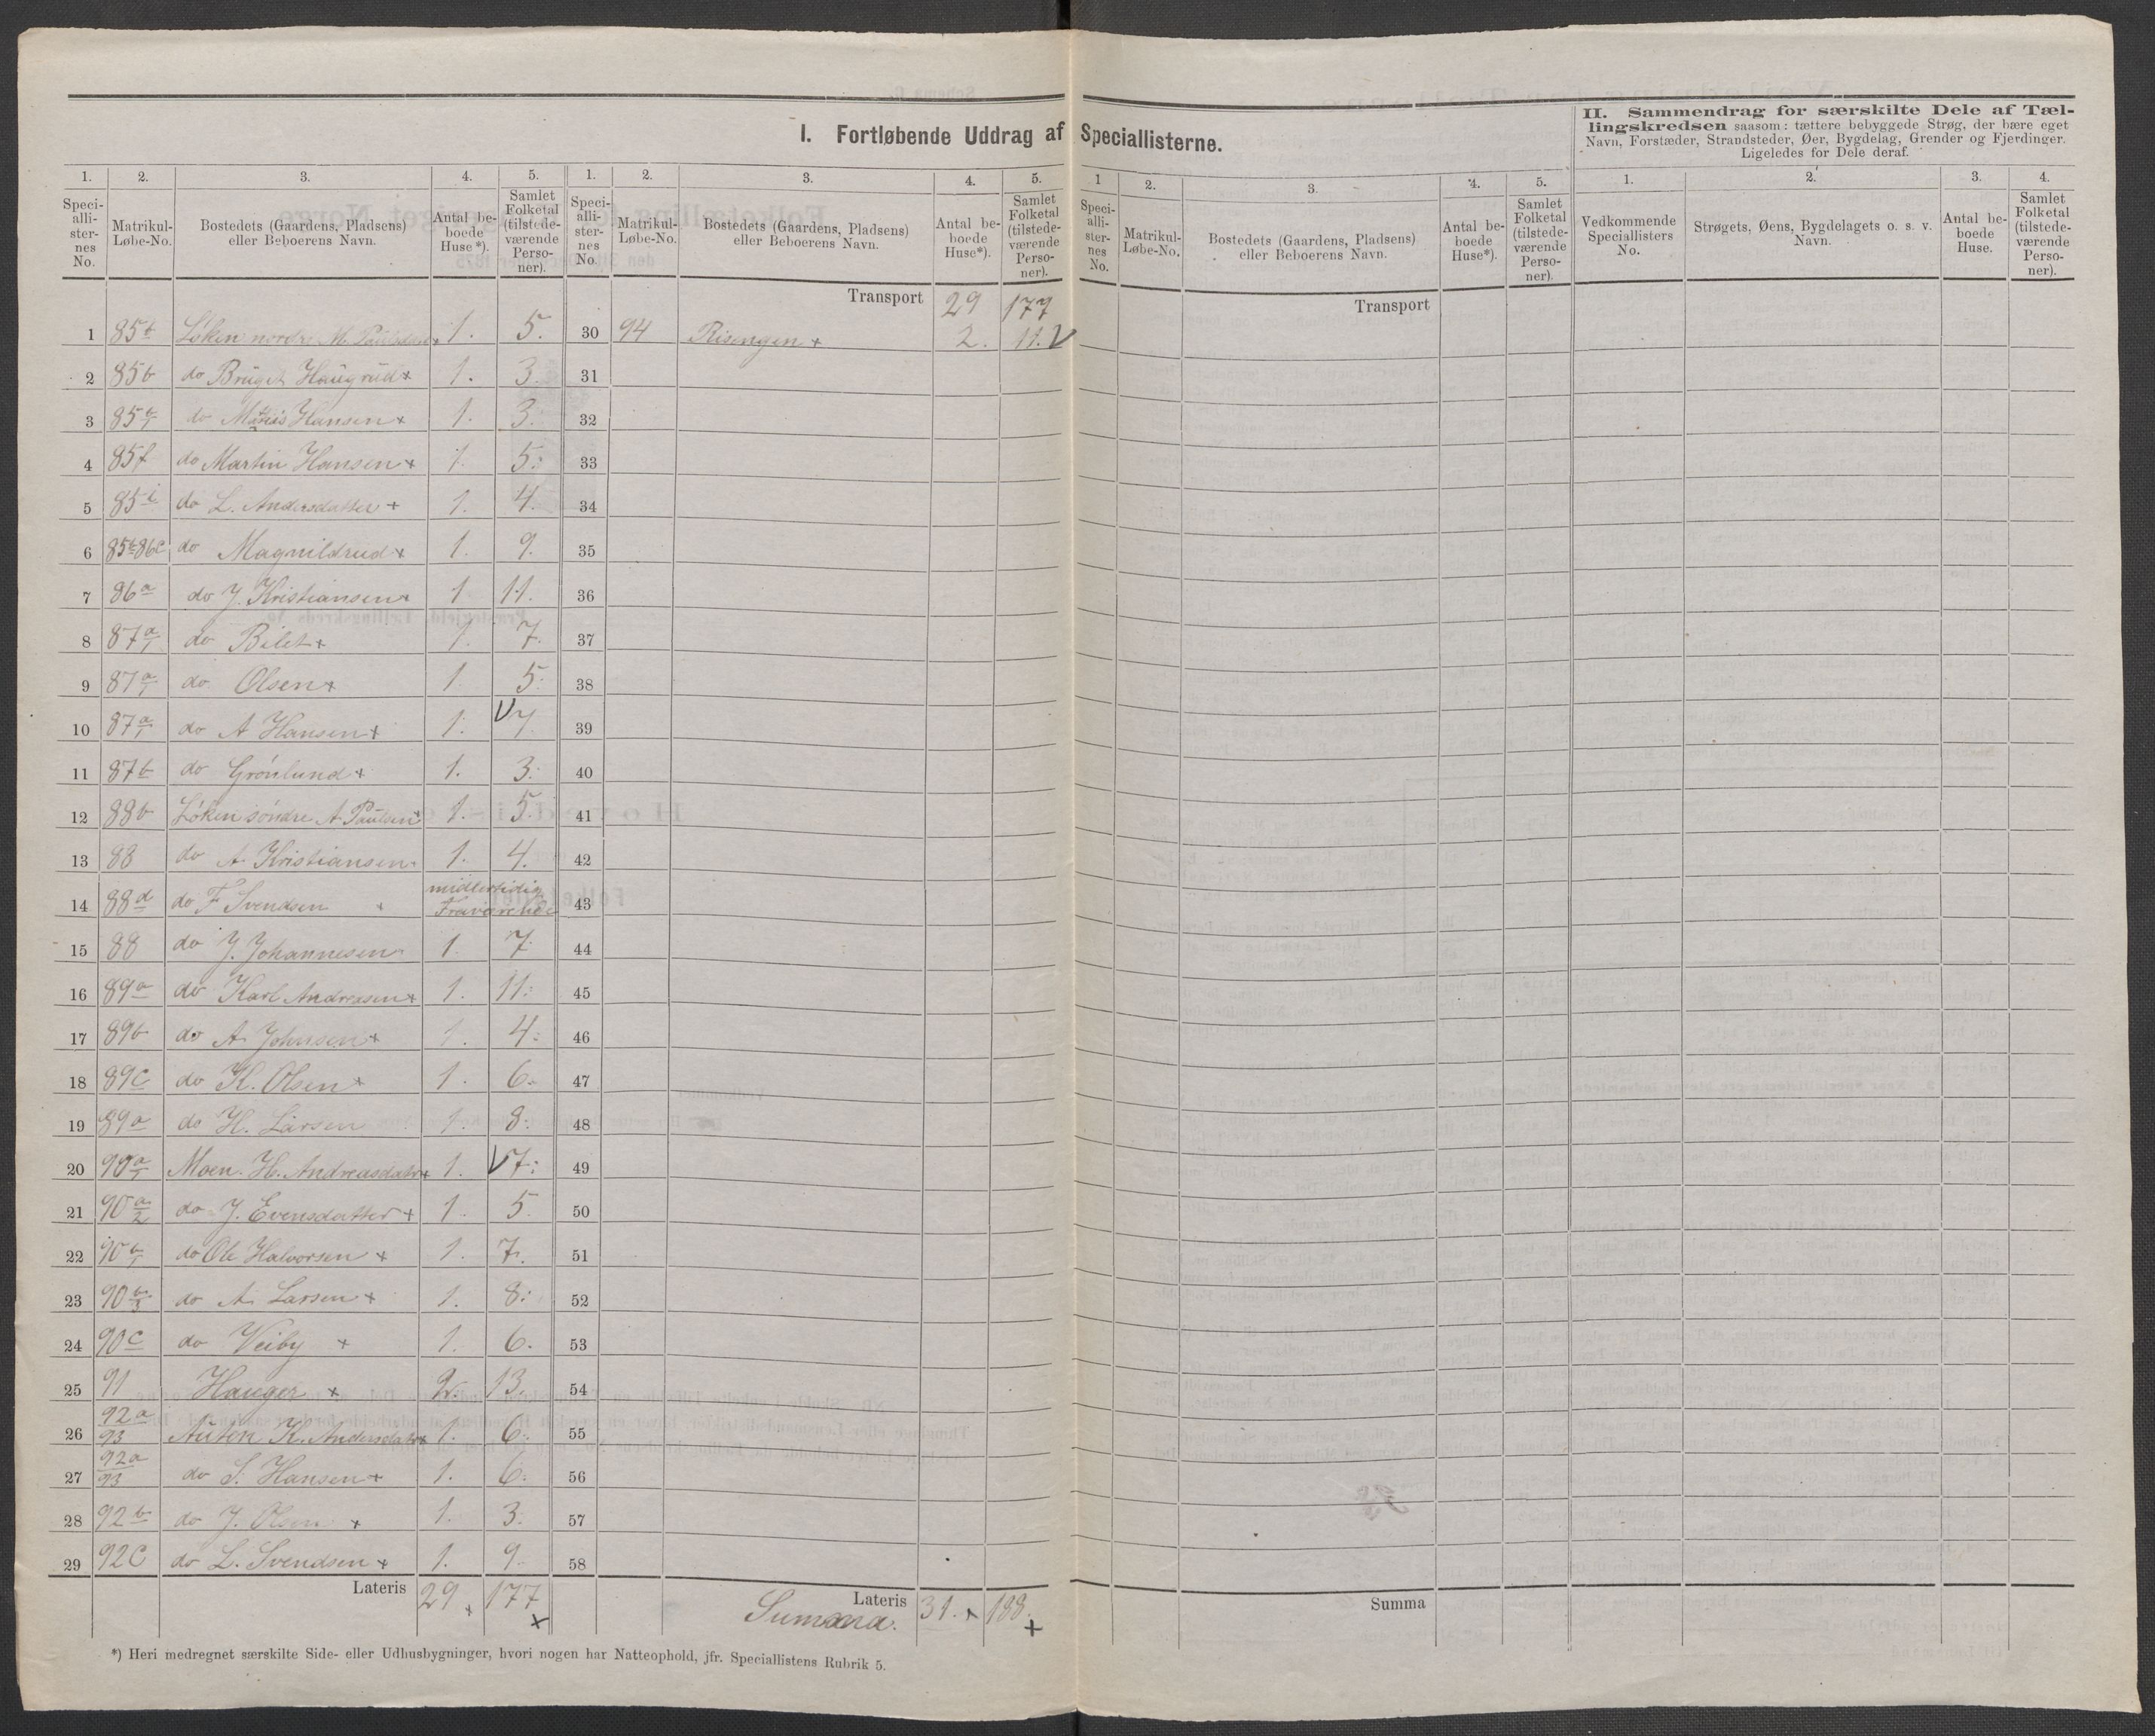 I. Fortløbende Uddrag af Speciallisterne.
II. Sammendrag for særskilte Dele af Tæl-
lingskredsen saasom: tættere bebyggede Strøg, der bære eget
Navn, Forstæder, Strandsteder, Øer, Bygdelag, Grender og Fjerdinger.
Ligeledes for Dele deraf.
1. 2. 3. 4. 5. 1. 2. 3. 4. 5. 1 2. 3. 4. 5. 1. 2. 3. 4.
Speci-alli-ster-nes No. Matrikul-Løbe-No. Bostedets (Gaardens, Pladsens) eller Beboerens Navn. Antal be-boede Huse*). Samlet Folketal (tilstede-værende Perso-ner).
Speci-alli-ster-nes No. Matrikul-Løbe-No. Bostedets (Gaardens, Pladsens) eller Beboerens Navn. Antal be-boede Huse*). Samlet Folketal (tilstede-værende Perso-ner).
Speci-alli-ster-nes No. Matrikul-Løbe-No. Bostedets (Gaardens, Pladsens) eller Beboerens Navn. Antal be-boede Huse*). Samlet Folketal (tilstede-værende Perso-ner).
Vedkommende Speciallisters No. Strøgets, Øens, Bygdelagets o. s. v. Navn. Antal be-boede Huse. Samlet Folketal (tilstede-værende Perso-ner).
Transport 29 177
Transport
1 85 Løken nordre M. Paulsen 1. 5. 30 94 Risengen + 2. 11. V
2 85b do Bruget Haugrud + 1. 3. 31
3 85 do Hansen + 1. 3. 32
4 85f do Martin Hansen + 1. 5: 33
5 85i do L. Andersdatter + 1. 4. 34
6 85 86c do Magnildrud + 1. 9. 35
7 86a do J. Kristiansen 1 11. 36
8 87a/1 do Bilet + 1. 7. 37
9 87a/1 do Olsen + 1. 5: 38
10 87a/1 do A Hansen + 1. V 7 39
11 87b do Grönlund + 1. 3: 40
12 88b Løken söndre A Paulsen 1. 5. 41
13 88 do A Kristiansen 1. 4. 42
14 88d do F Svendsen midlertidig Fraværende 43
15 88 do J. Johannesen 1. 7. 44
16 89a do Karl Andreasen + 1. 11: 45
17 89b do A. Johnsen + 1. 4: 46
18 89c do K. Olsen + 1. 6. 47
19 89a do H. Larsen 1. 8: 48
20 90a/1 Moen. H. Andreasdatter 1. V 7: 49
21 90a/2 do J. Evensdatter + 1. 5. 50
22 90b/1 do Ole Halvorsen + 1. 7. 51
23 90b/3 do A. Larsen + 1. 8: 52
24 90c do Veiby + 1. 6. 53
25 91 Hauger + 2. 13. 54
26 92a/93 Auten K. Andersdatter 1. 6. 55
27 92a/93 do S. Hansen + 1. 6: 56
28 92b do J. Olsen + 1. 3. 57
29 92c do L. Svendsen + 1. 9. 58
Lateris 29 + 177 +
Lateris Summa. 31. + 188. +
Summa
*) Heri medregnet særskilte Side- eller Udhusbygninger, hvori nogen har Natteophold, jfr. Speciallistens Rubrik 5.